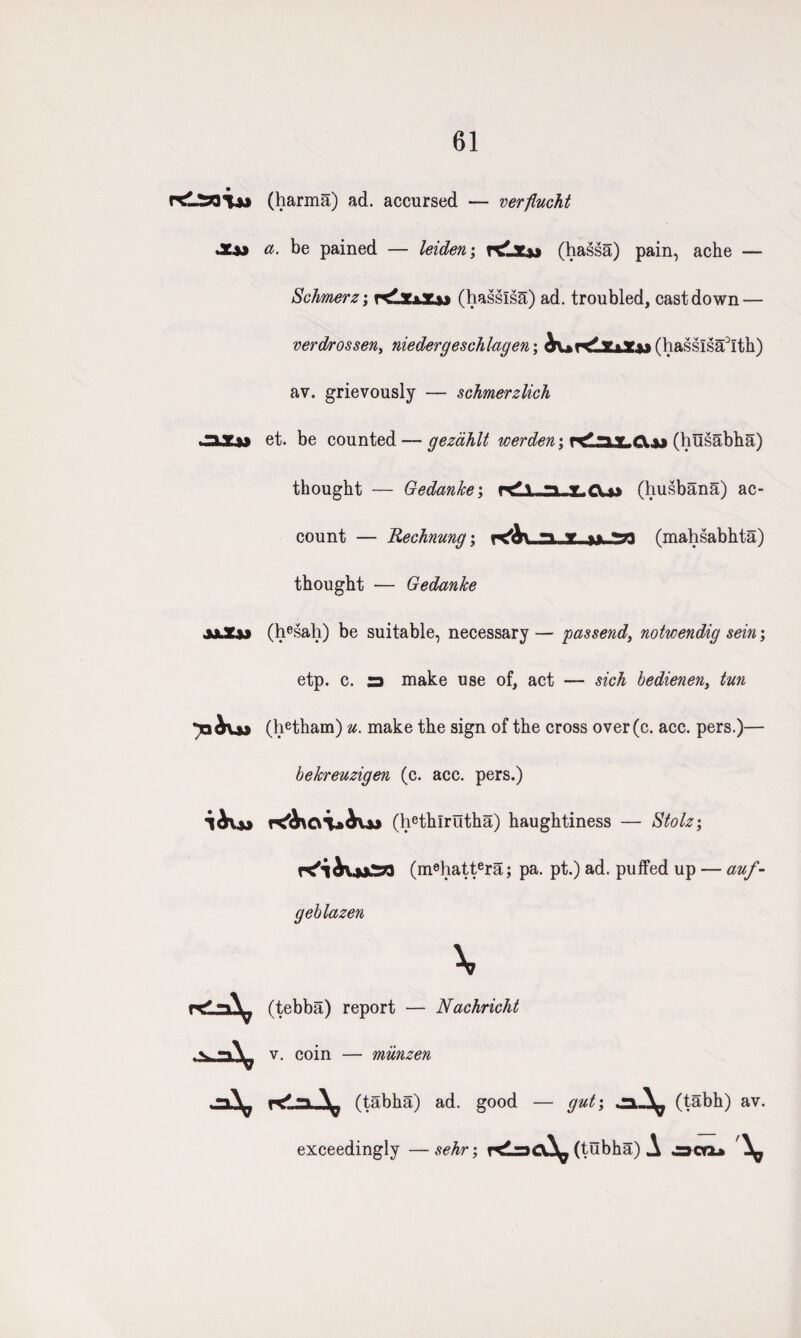 61
ܚܪܡܐ (ḥarmā) ad. accursed — verflucht
ܚܫ a. be pained — leiden; ܚܫܐ (ḥaššā) pain, ache —
Schmerz; ܚܫܝܫܐ (ḥaššīšā) ad. troubled, castdown —
verdrossen, niedergeschlagen; ܚܫܝܫܐܝܬ (ḥaššīšāʾīth)
av. grievously — schmerzlich
ܚܫܒ et. be counted — gezählt werden; ܚܘܫܒܐ (ḥūšābhā)
thought — Gedanke; ܚܘܫܒܢܐ (ḥušbānā) ac-
count — Rechnung; ܡܚܫܒܬܐ (maḥšabhtā)
thought — Gedanke
ܚܫܚ (ḥᵉšaḥ) be suitable, necessary — passend, notwendig sein;
etp. c. ܒ make use of, act — sich bedienen, tun
ܚܬܡ (ḥᵉtham) u. make the sign of the cross over (c. acc. pers.)—
bekreuzigen (c. acc. pers.)
ܚܬܪ ܚܬܝܪܘܬܐ (ḥᵉthīrūthā) haughtiness — Stolz;
ܡܚܬܪܐ (mᵉḥattᵉrā; pa. pt.) ad. puffed up — auf-
geblazen
ܛ
ܛܒܐ (ṭebbā) report — Nachricht
ܛܒܥ v. coin — münzen
ܛܒ ܛܒܐ (ṭābhā) ad. good — gut; ܛܒ (ṭābh) av.
exceedingly — sehr; ܛܘܒܐ (ṭūbhā) ܠ ܝܗܒ ܛ